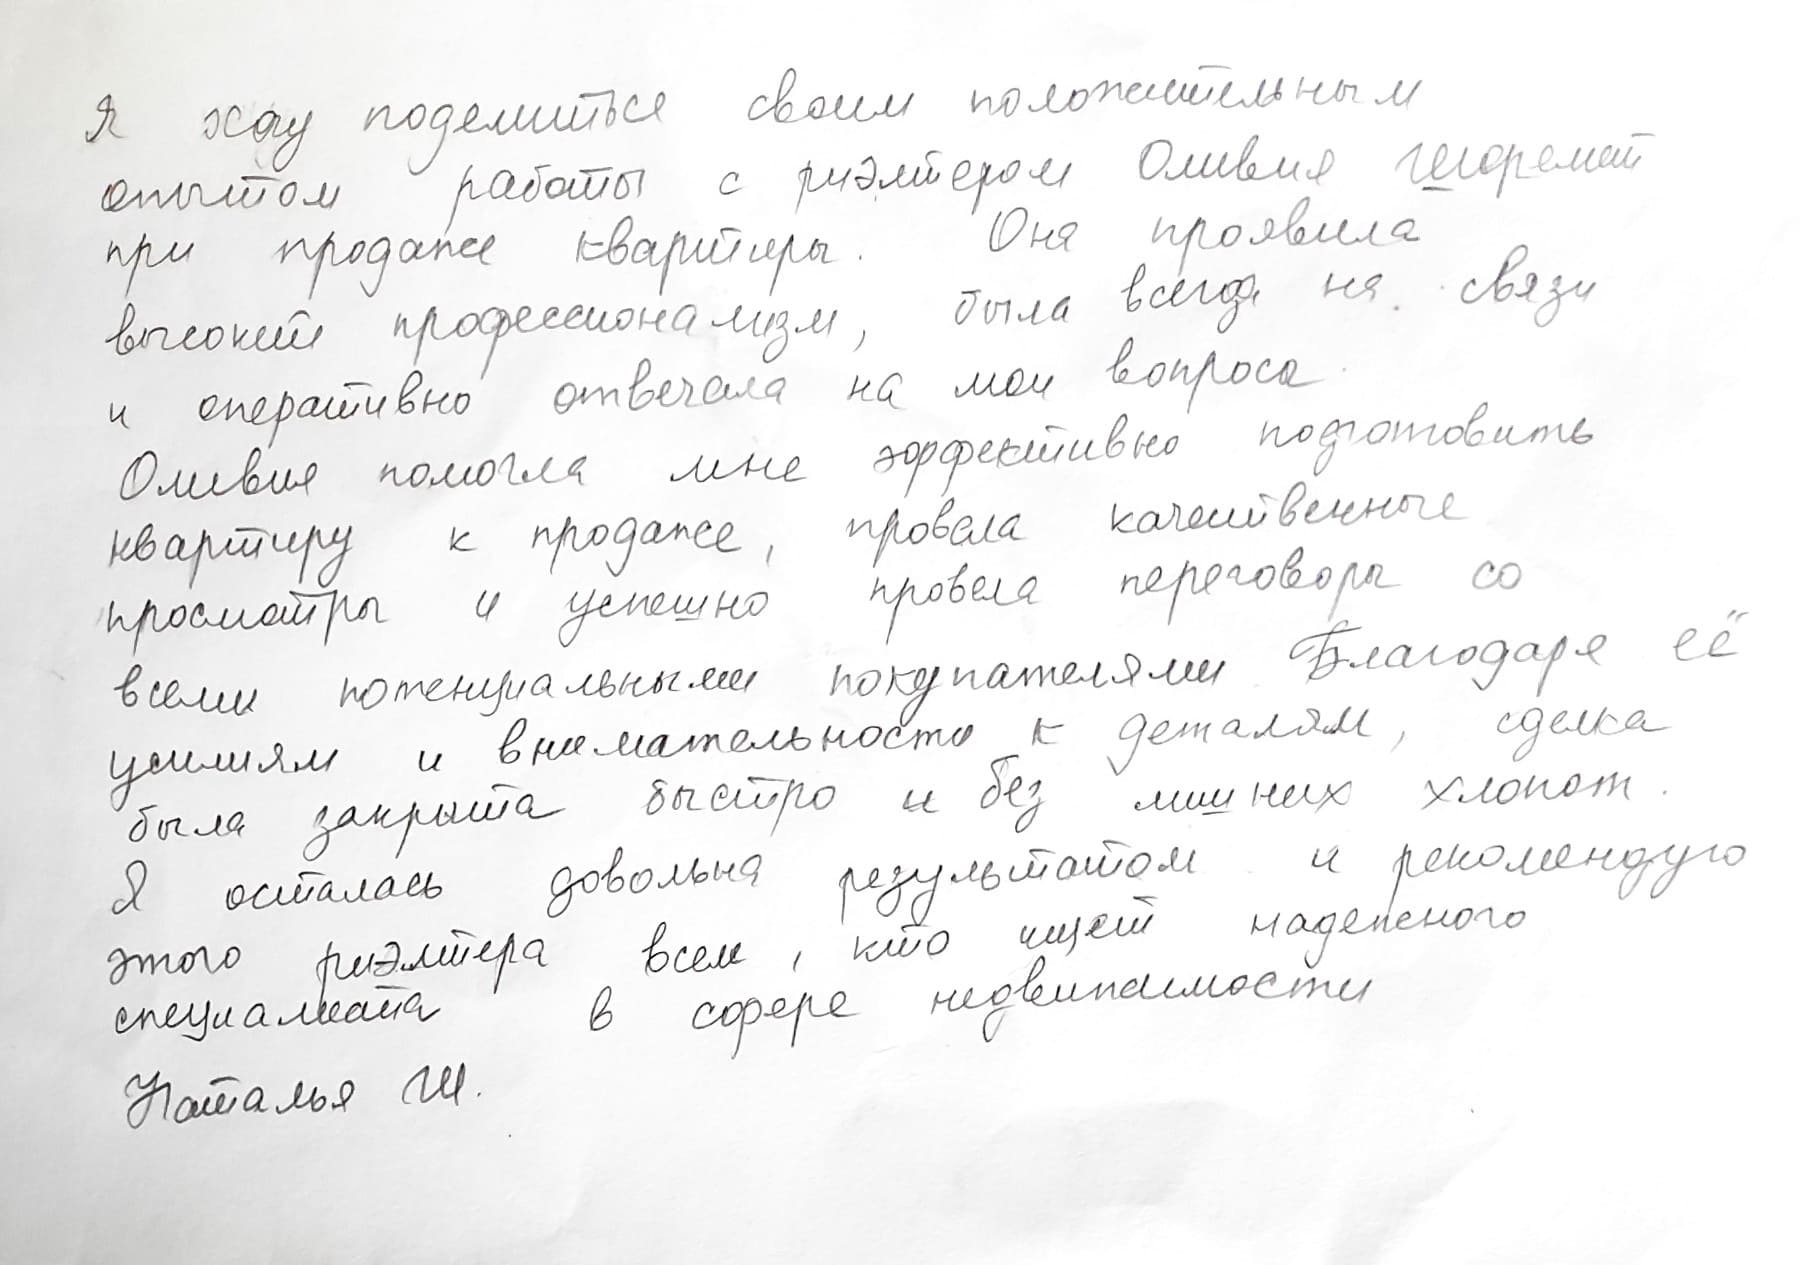 Я хочу поделиться своим положительным
опытом работы с риэлтером Оливия
при продаже квартиры. Она проявила
высокий профессионализм, была всегда на связи
и оперативно отвечала на мои вопроса.
Оливия помогла мне эффективно подготовить
квартиру к продаже, провела качественные
просмотры и успешно провела переговоры со
всеми потенциальными покупателями Благодаря её
усилиям и внимательности к деталям, сделка
была закрыта быстро и без лишних хлопот.
Я осталась довольна результатом и рекомендую
этого риэлтера всем, кто ищет надежного
специалиста в сфере недвижимости
Наталья Ш.